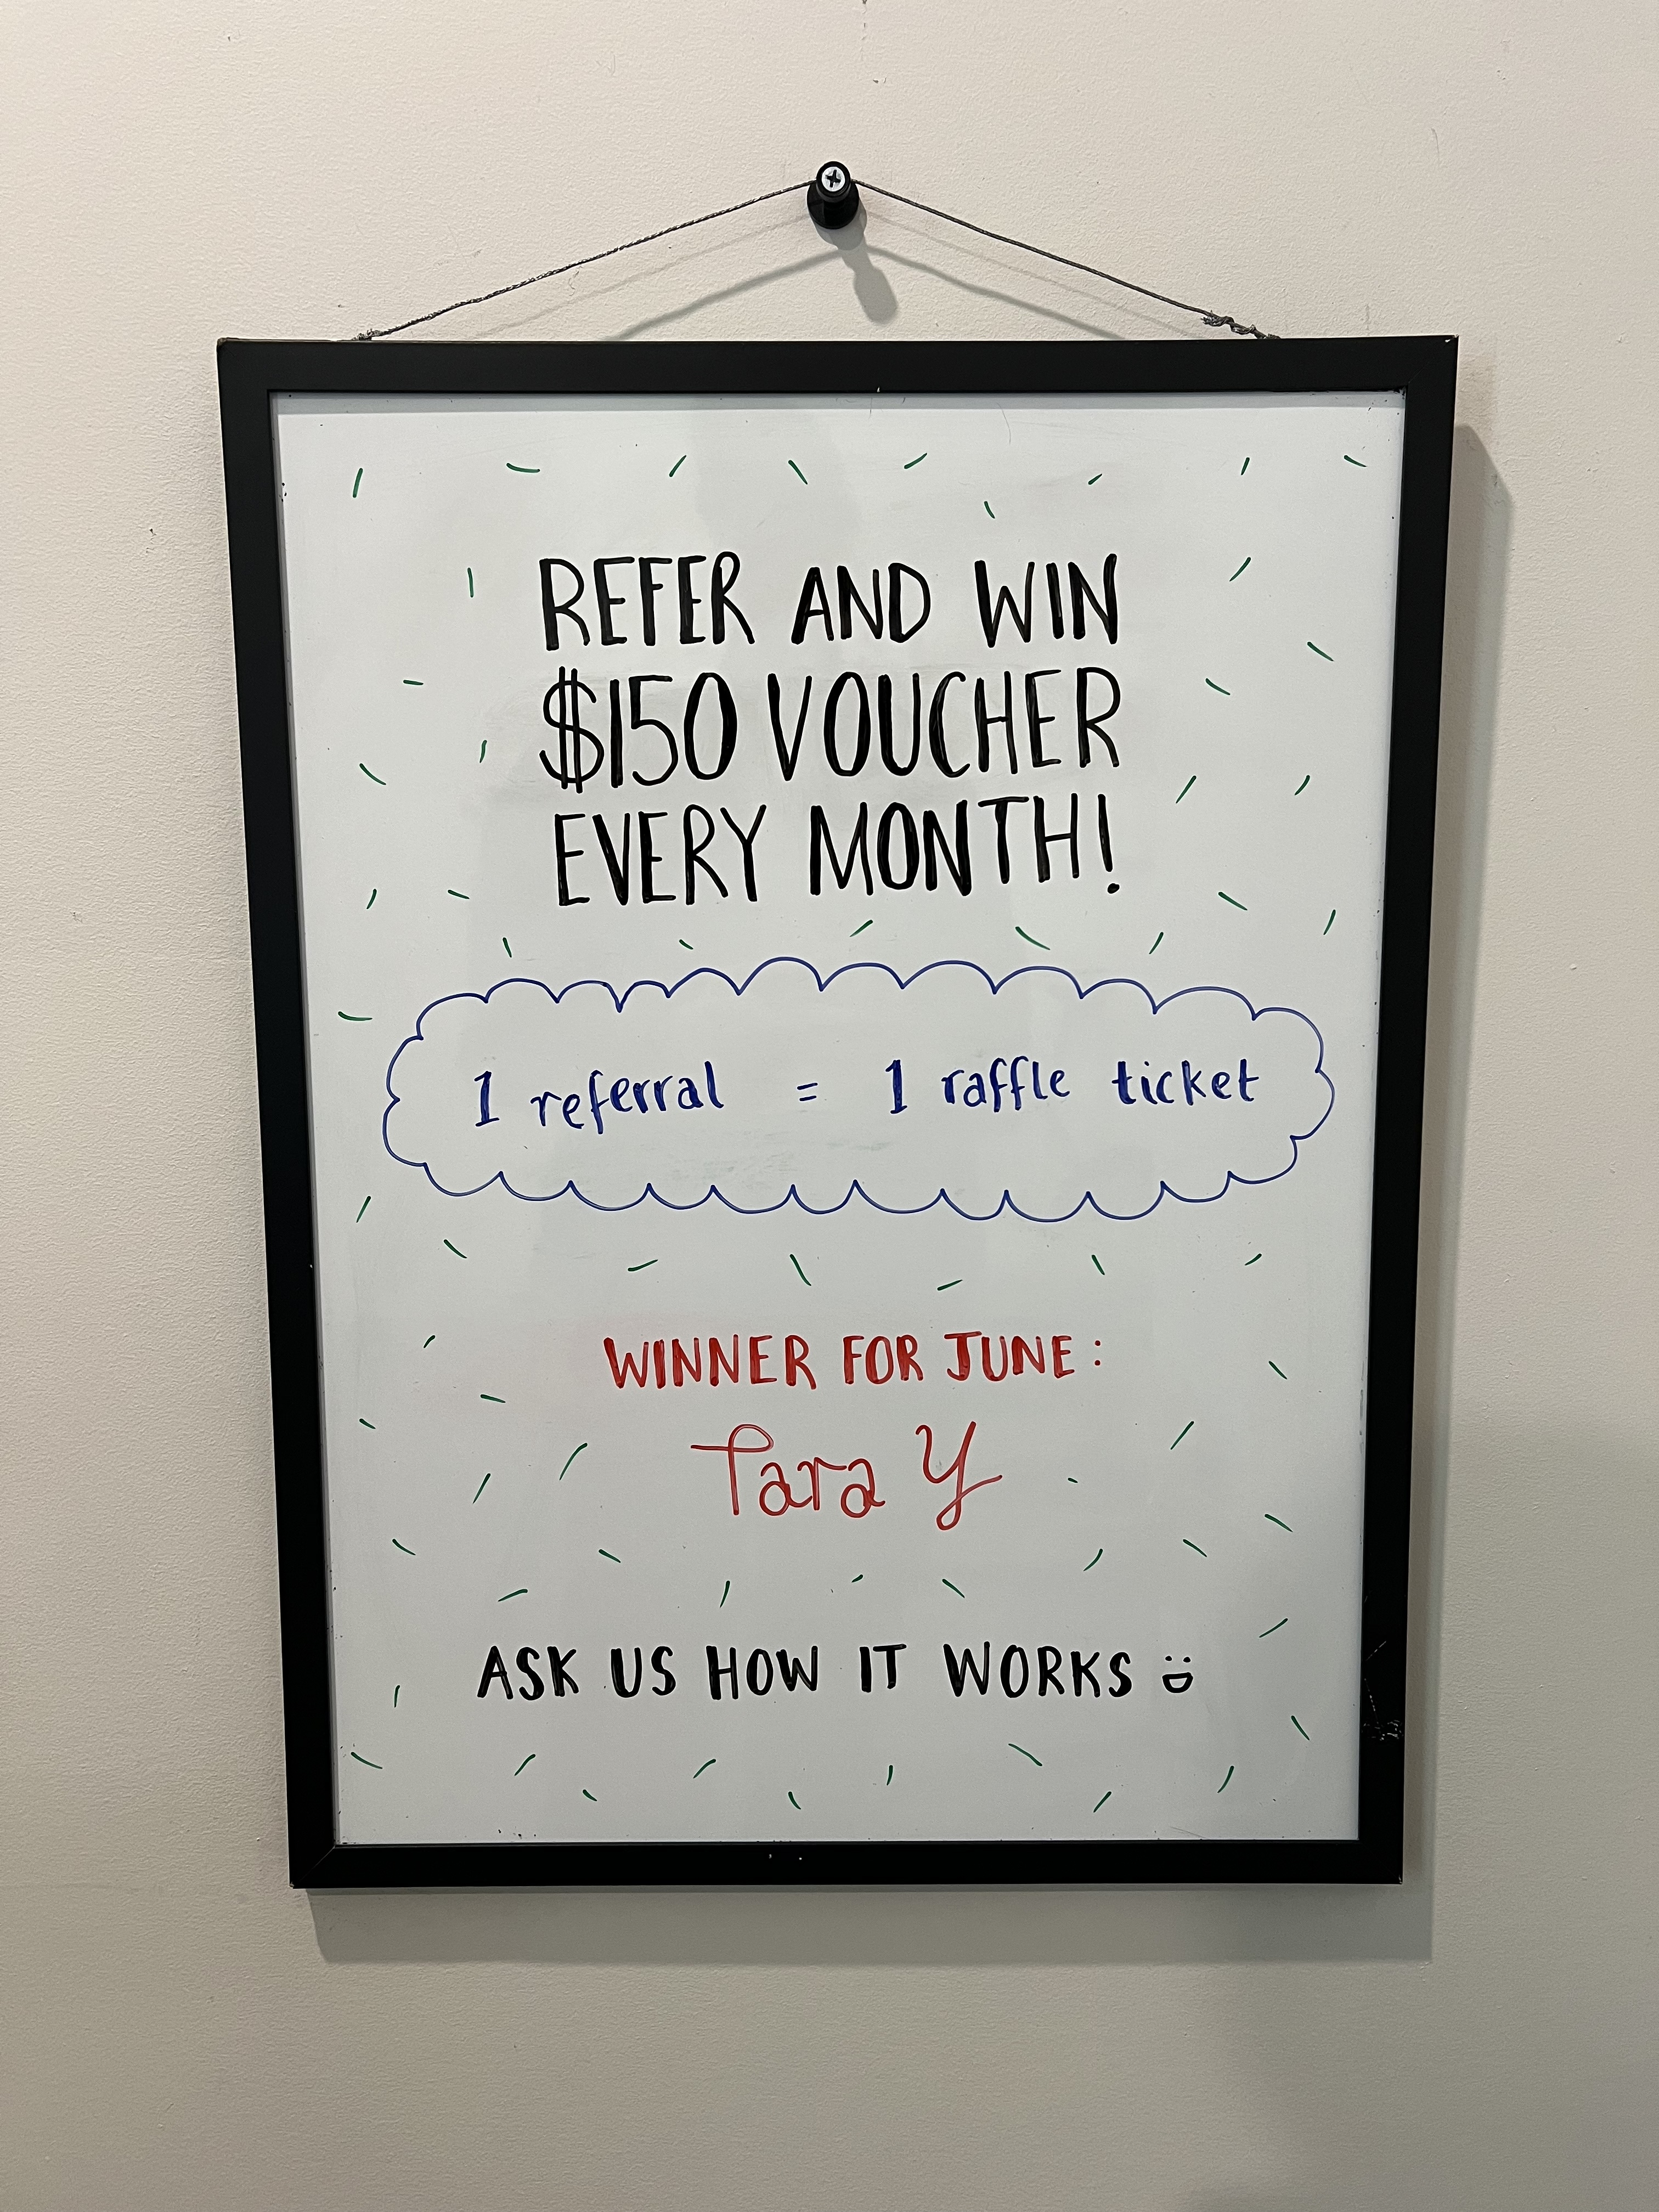 REFER AND WIN
$150 VOUCHER
EVERY MONTH!
1 referral = 1 raffle ticket
WINNER FOR JUNE:
Tara Y
ASK US HOW IT WORKS